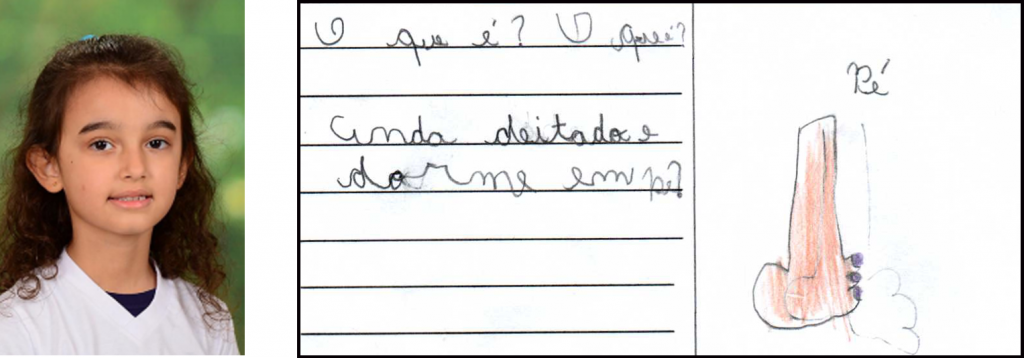 O que é? O que é?
anda deitado e
dorme em pé?
Pé